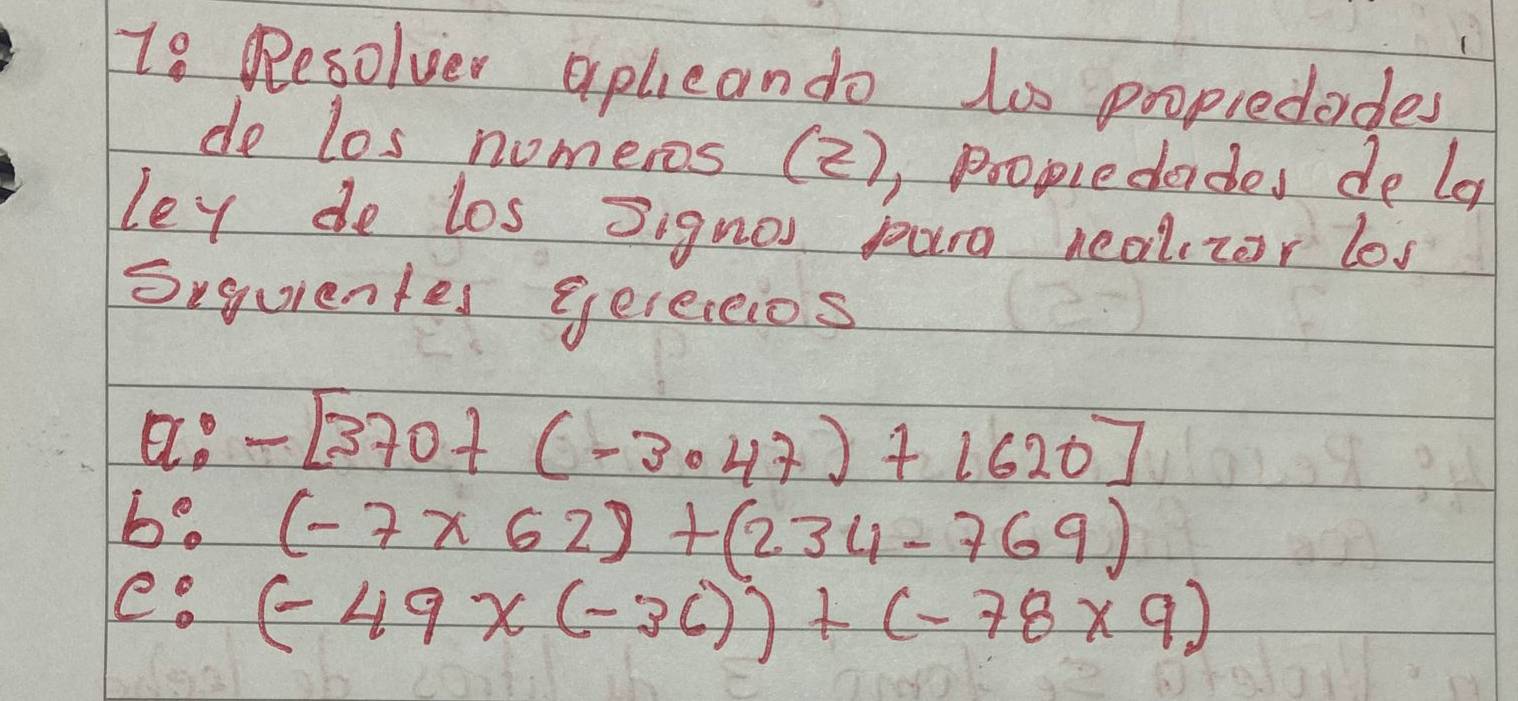 1: Resolver aplicando las propiedades
de los numeros (Z), propiedades de la
ley de los signos para realizar los
siguientes Ejercicios
a: -[370 + (-3•47) + 1620]
b: (-7 x 62) + (234 - 769)
c: (-49 x (-36)) + (-78 x 9)